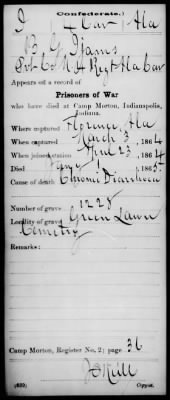 (Confederate.)
I 4 Cav Ala
B G Stams
Pvt Co M 4 Regt Ala Cav
Appears on a record of
Prisoners of War
who have died at Camp Morton, Indianapolis,
Indiana.
Where captured Florence, Ala
When captured March 3, 1864
When joined station April 23, 1864
Died Jany 1, 1865.
Cause of death Chronic Diarrhoea
Number of grave 1228
Locality of grave Green Lawn
Cemetry
Remarks:
Camp Morton, Register No. 2; page 36
(639)
Copyist.